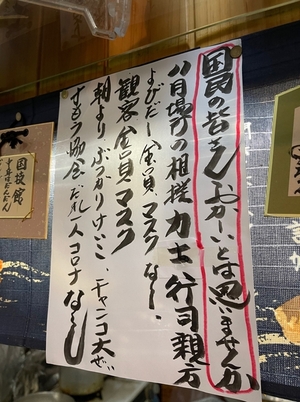 国民の皆さんおかしいとは思いませんか
11月場所の相撲 力士 行司 親方
よびだし全員マスクなし、
観客全員マスク
朝よりぶつかりけいこ、チャンコ大ぜ
する 協会だれ一人コロナなし
国技館